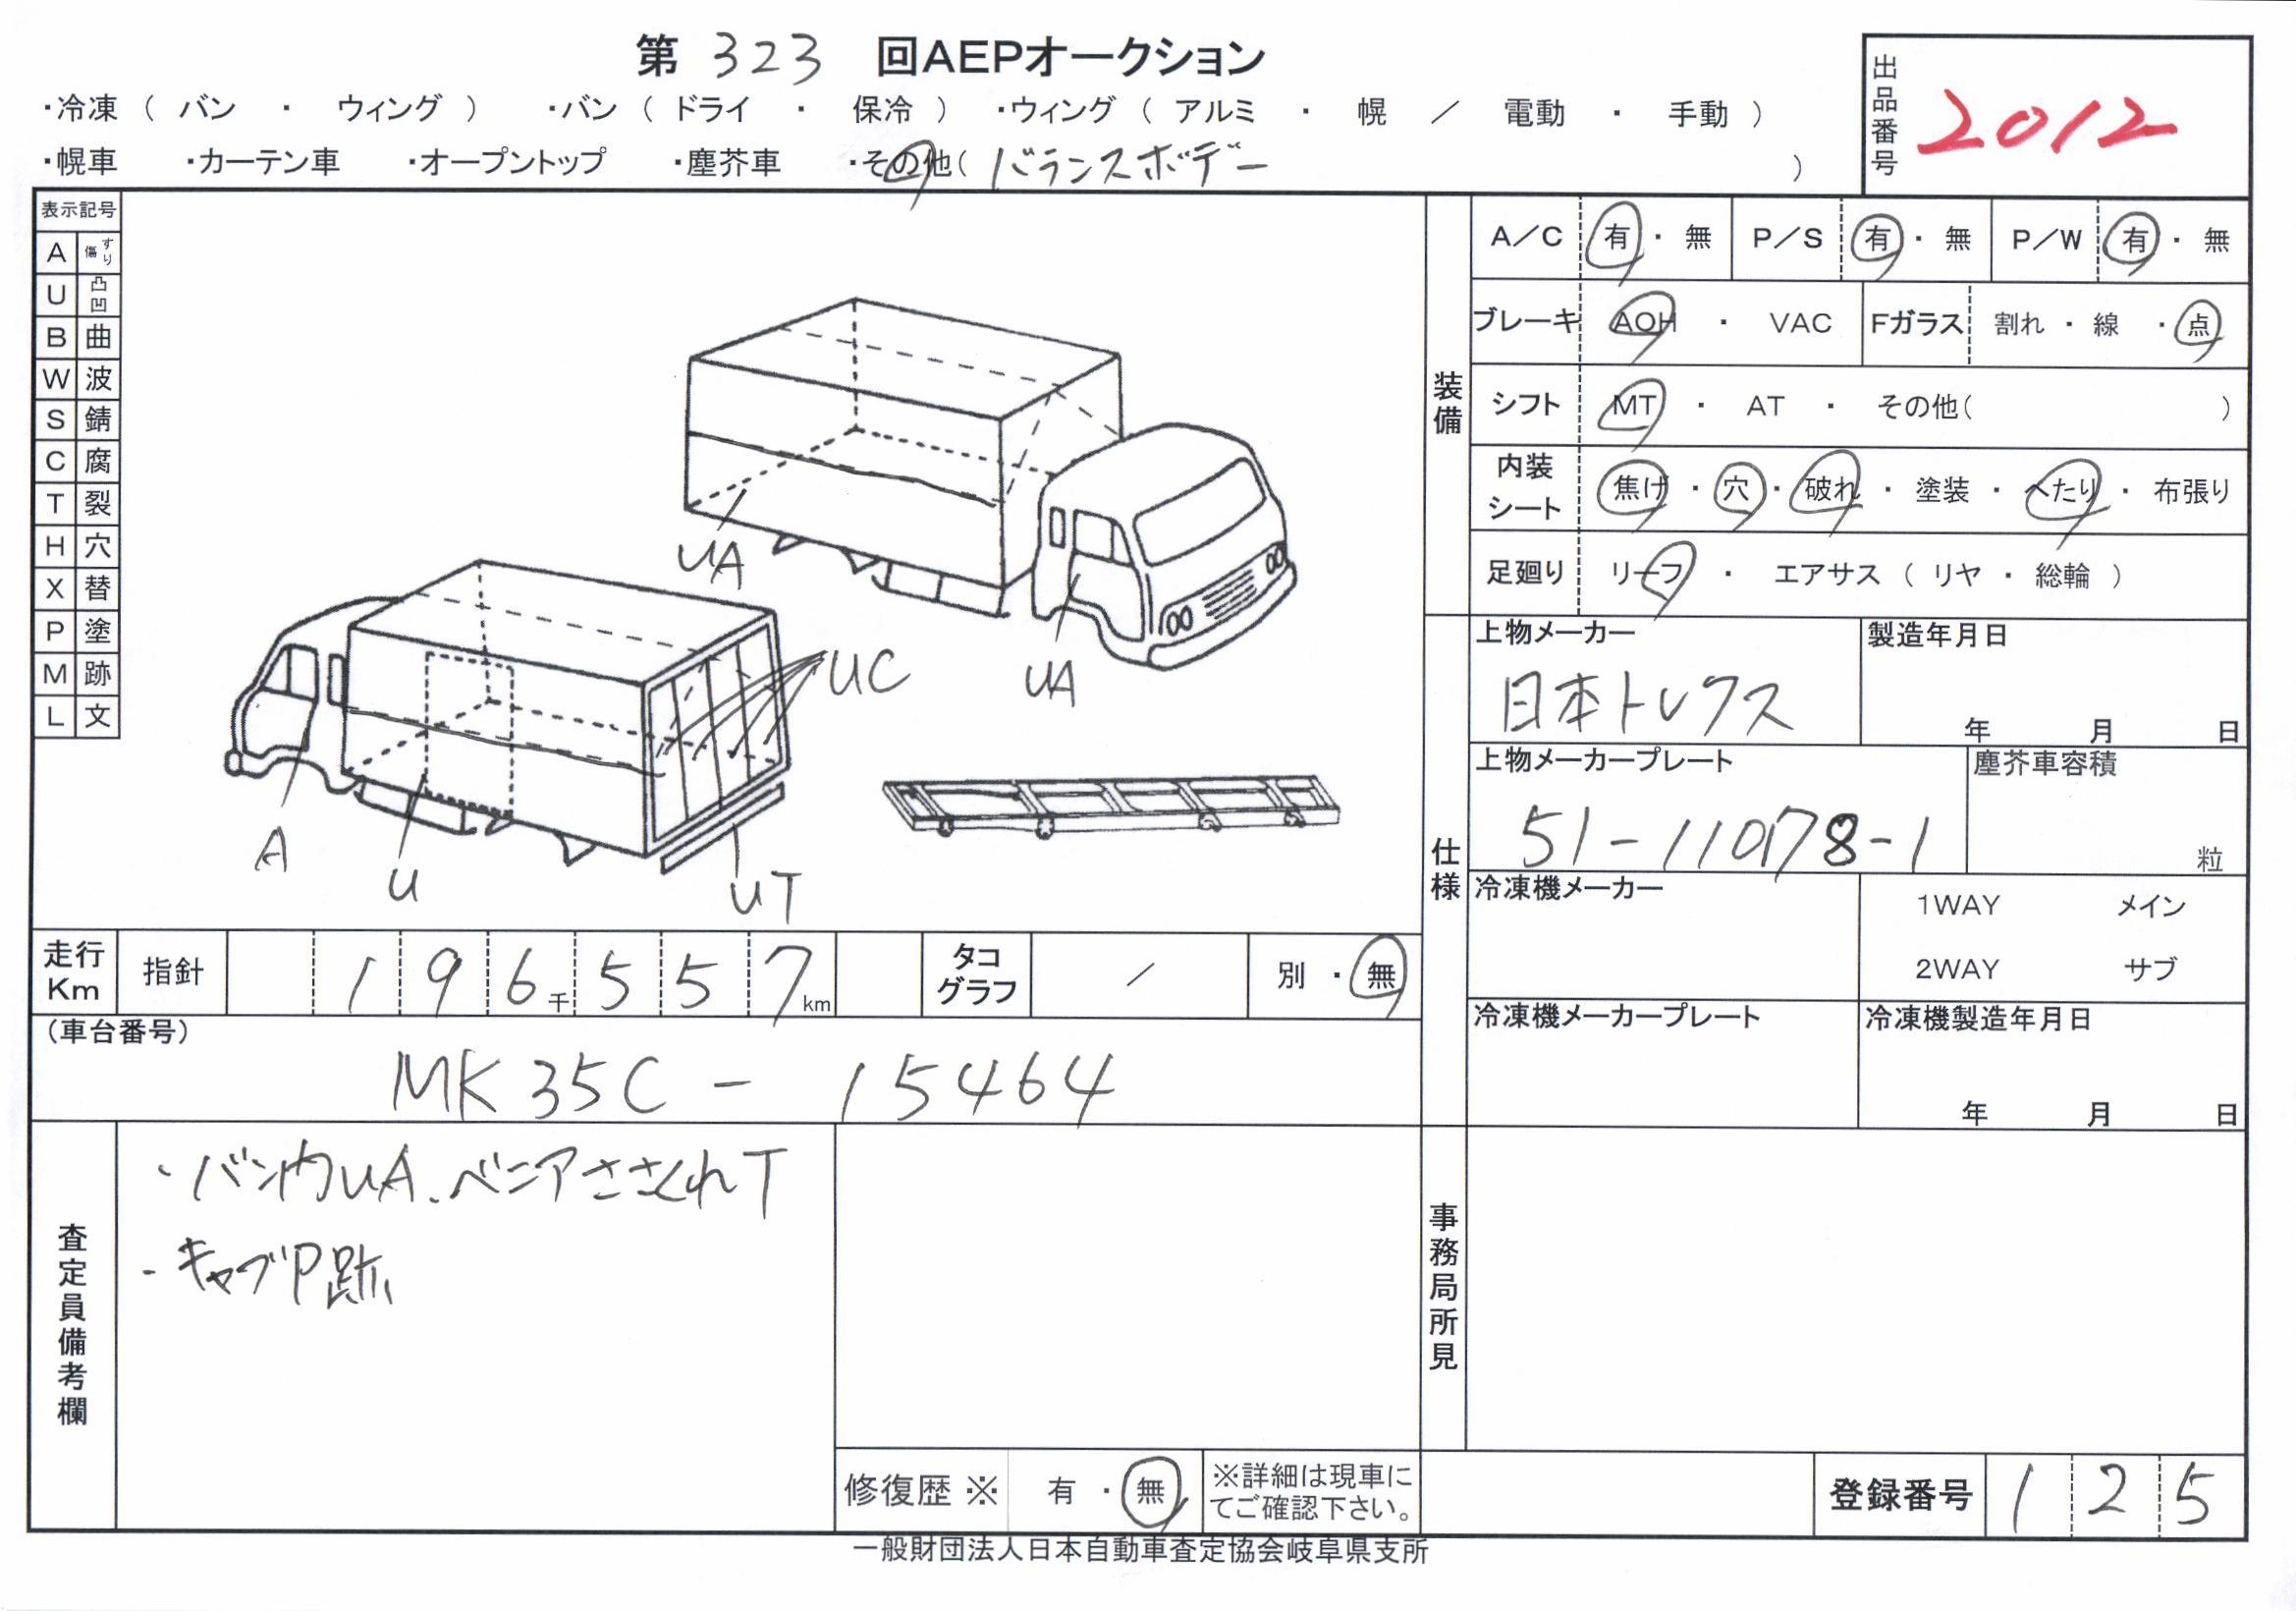 第 323 回AEPオークション
出品番号 2012
・冷凍 ( バン ・ ウィング ) ・バン ( ドライ ・ 保冷 ) ・ウィング ( アルミ ・ 幌 / 電動 ・ 手動 )
・幌車 ・カーテン車 ・オープントップ ・塵芥車 ・その他( バランスボデー )
表示記号
A すり傷
U 凸凹
B 曲
W 波
S 錆
C 腐
T 裂
H 穴
X 替
P 塗
M 跡
L 文
UA
UA
UC
A
U
UT
装備
A/C 有 ・ 無 P/S 有 ・ 無 P/W 有 ・ 無
ブレーキ AOH ・ VAC Fガラス 割れ ・ 線 ・ 点
シフト MT ・ AT ・ その他( )
内装シート 焦げ ・ 穴 ・ 破れ ・ 塗装 ・ へたり ・ 布張り
足廻り リーフ ・ エアサス ( リヤ ・ 総輪 )
仕様
上物メーカー 製造年月日
日本トレクス
年 月 日
上物メーカープレート 塵芥車容積
51-110178-1
粒
冷凍機メーカー 1WAY メイン
2WAY サブ
冷凍機メーカープレート 冷凍機製造年月日
年 月 日
走行Km 指針 196千557km タコグラフ / 別 ・ 無
(車台番号)
MK35C - 15464
査定員備考欄
・バン内UA、ベニアささくれT
・キャブP跡
事務局所見
修復歴 ※ 有 ・ 無 ※詳細は現車にてご確認下さい。
登録番号 125
一般財団法人日本自動車査定協会岐阜県支所